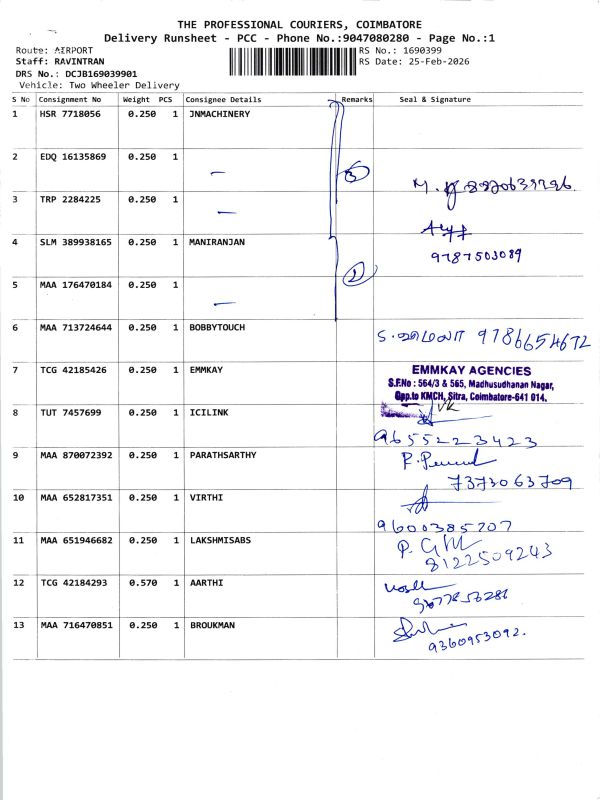 THE PROFESSIONAL COURIERS, COIMBATORE
Delivery Runsheet - PCC - Phone No.:9047080280 - Page No.:1
Route: AIRPORT
RS No.: 1690399
Staff: RAVINTRAN
RS Date: 25-Feb-2026
DRS No.: DCJB169039901
Vehicle: Two Wheeler Delivery
S No Consignment No Weight PCS Consignee Details Remarks Seal & Signature
1 HSR 7718056 0.250 1 JNMACHINERY
2 EDQ 16135869 0.250 1 —
3
3 TRP 2284225 0.250 1 —
4 SLM 389938165 0.250 1 MANIRANJAN
9787503089
2
5 MAA 176470184 0.250 1 —
6 MAA 713724644 0.250 1 BOBBYTOUCH 9786654672
7 TCG 42185426 0.250 1 EMMKAY
EMMKAY AGENCIES
S.F.No : 564/3 & 565, Madhusudhanan Nagar,
Opp.to KMCH, Sitra, Coimbatore-641 014.
8 TUT 7457699 0.250 1 ICILINK
9655223423
9 MAA 870072392 0.250 1 PARATHSARTHY
7373063709
10 MAA 652817351 0.250 1 VIRTHI
9600385207
11 MAA 651946682 0.250 1 LAKSHMISABS
8122509243
12 TCG 42184293 0.570 1 AARTHI
13 MAA 716470851 0.250 1 BROUKMAN
9360953092.